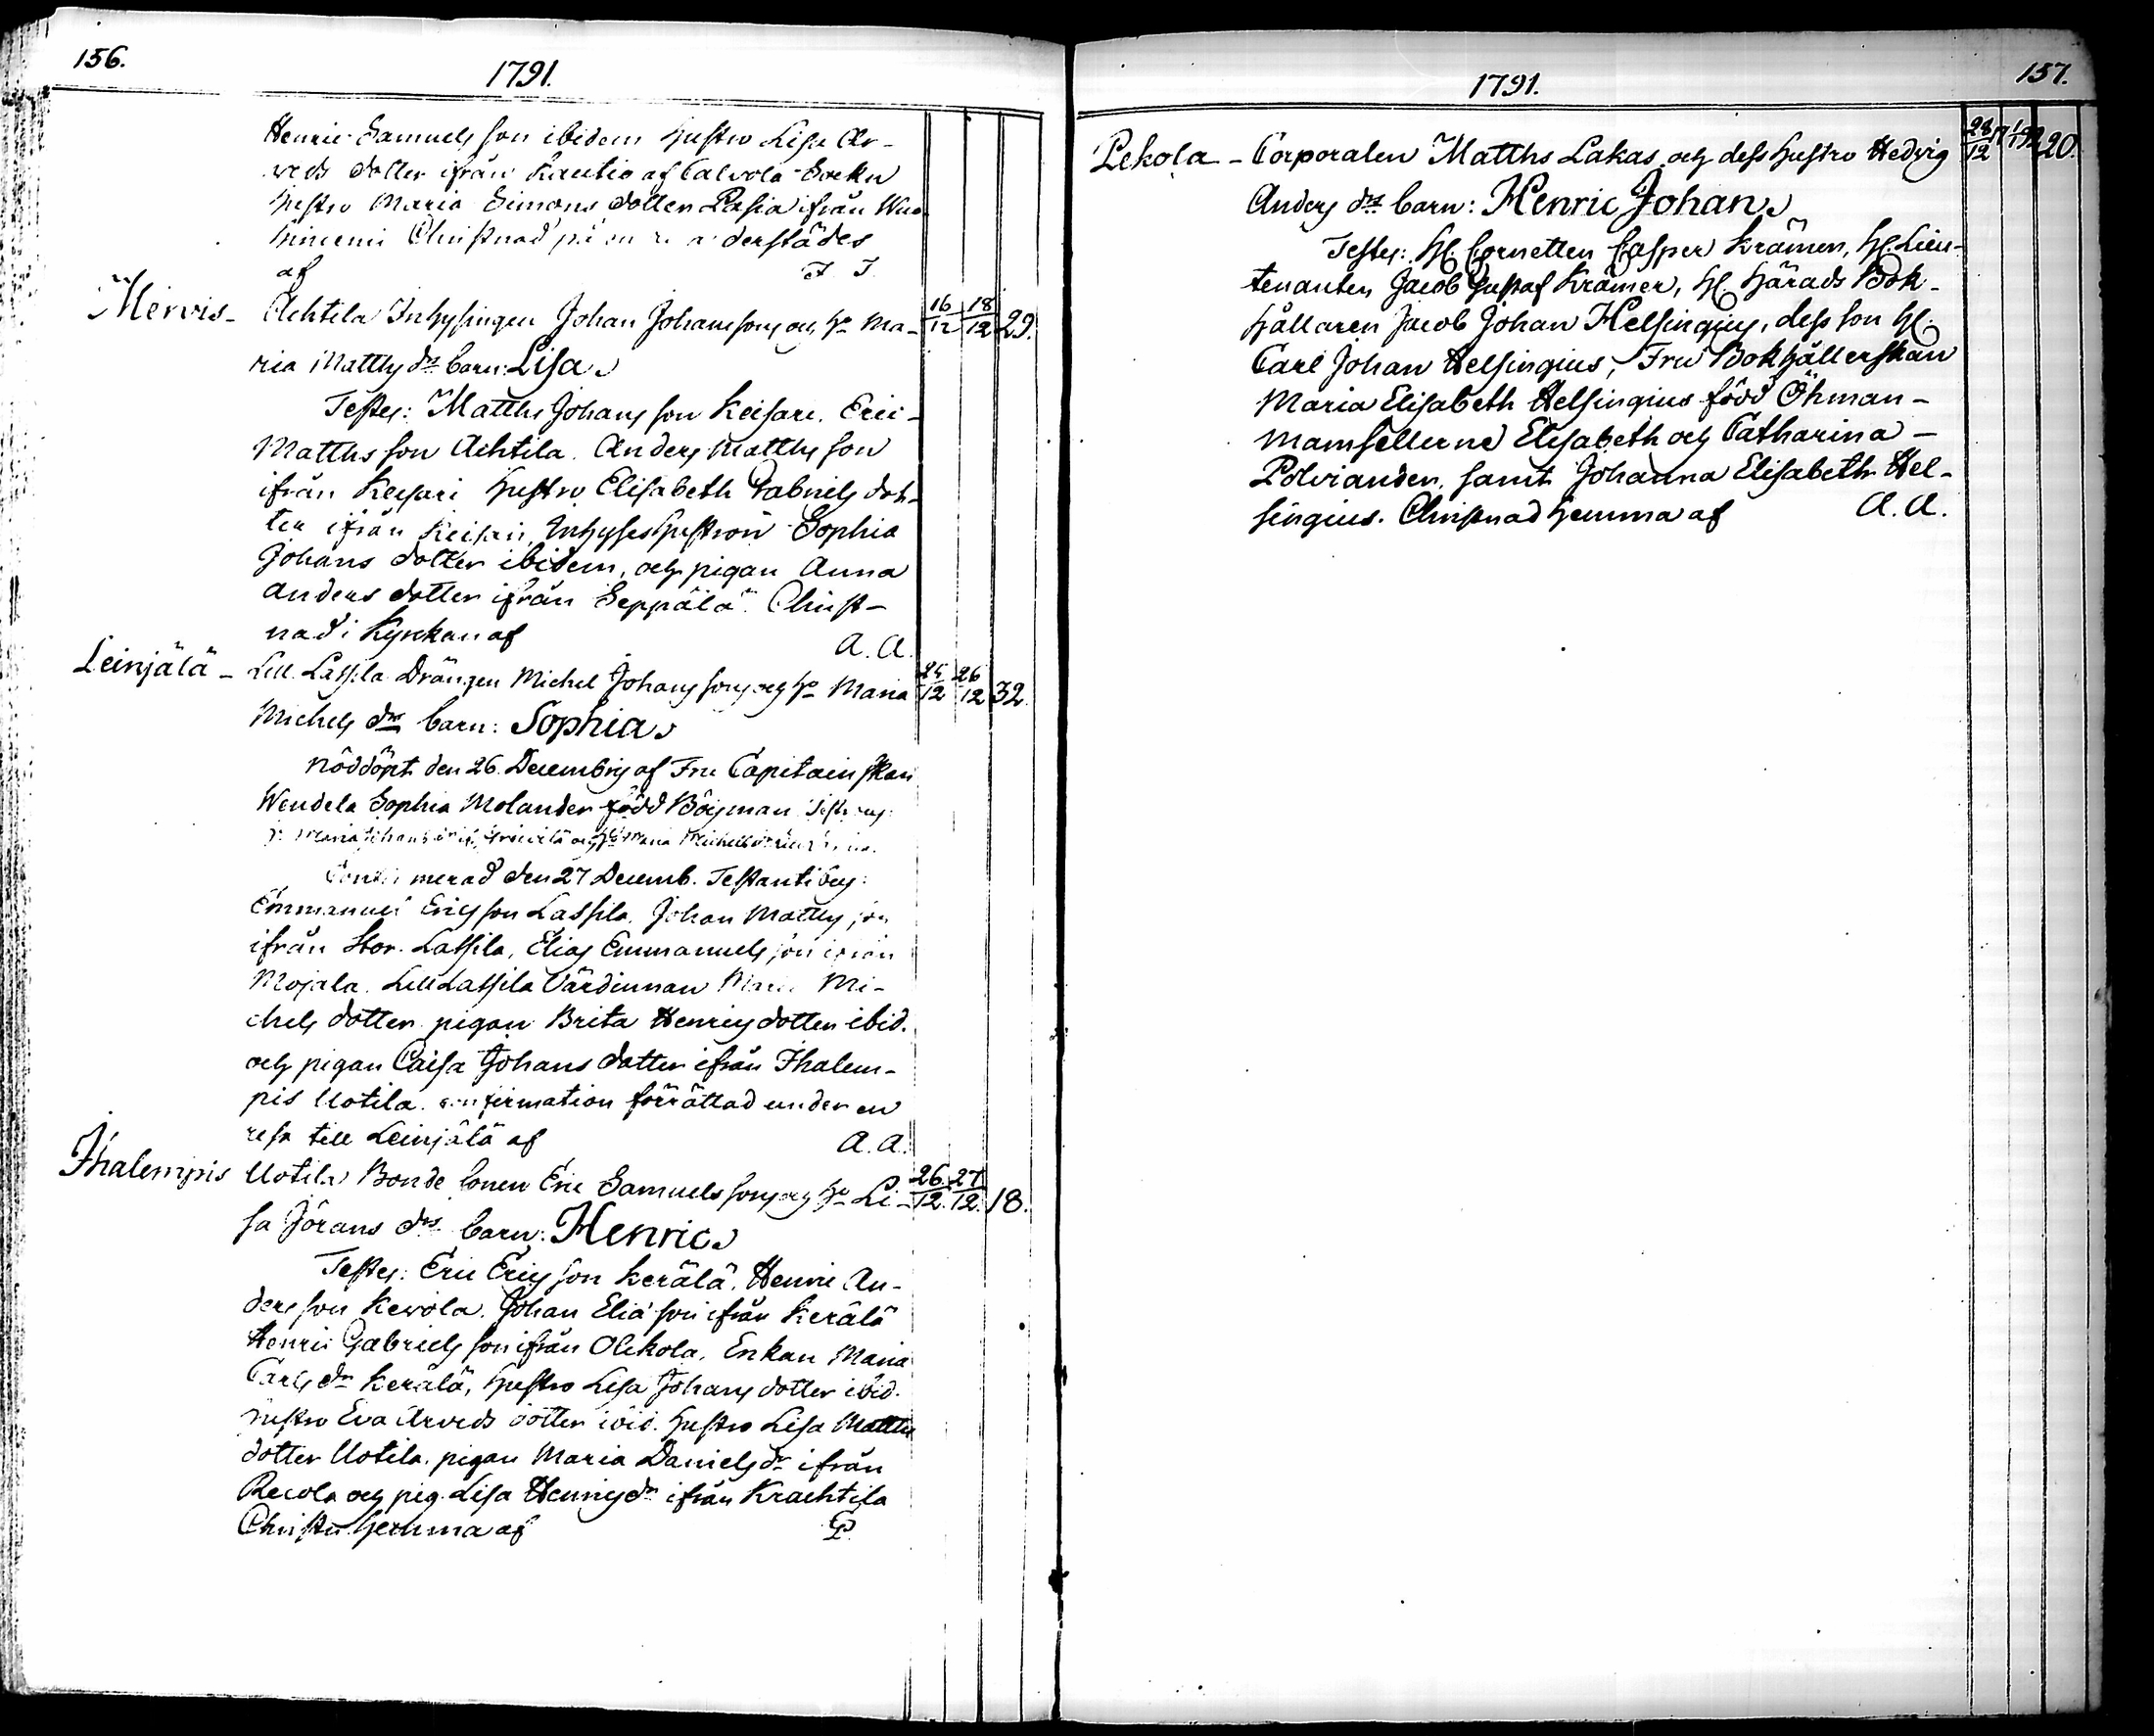 156.
1791.
Henric Samuels son ibidem hustro Lisa Ar-
veds dotter ifrån Kautio af Calvola Sockn
hustro Maria Simons dotter Pasia ifrån
Christnad derstädes
af J. J.
Mervis- Achtila Inhysingen Johan Johanssons och ho Ma- 16/12 18/12 29.
ria Matths drs barn: Lisa
Testes: Matths Johans son Keisari. Eric
Matths son Achtila. Anders Matths son
ifrån Keisari hustro Elisabeth Gabriels dot-
ter ifrån Keisari, Inhyses hustron Sophia
Johans dotter ibidem, och pigan Anna
Anders dotter ifrån Seppälä. Christ-
nad i Kyrckan af A. A.
Leinjälä- Lill Lassila Drängen Michel Johans sons och ho Maria 25/12 26/12 32.
Michels drs barn: Sophia
Nöddöpt den 26. Decembris af Fru Capitainskan
Wendela Sophia Molander född Böisman
Maria Johans och Maria Michels
merad den 27 Decemb. Testantibus:
Emmanuel Erics son Lassila, Johan Matths son
ifrån Stor Lassila, Elias Emmanuels son ifrån
Mojala. Lill Lassila Värdinnan Maria Mi-
chels dotter pigan Brita Henrics dotter ibid.
och pigan Caisa Johans dotter ifrån Ihalem-
pis Uotila. confirmation förrättad under en
resa till Leinjälä af A. A.
Ihalempis Uotila Bonde sonen Eric Samuels sons och ho Li- 26/12. 27/12. 18.
sa Jörans drs barn: Henric
Testes: Eric Erics son Kerälä. Henric An-
ders son Kerola. Johan Elia son ifrån Kerälä
Henric Gabriels son ifrån Olckola. Enkan Maria
Carls dr Kerälä, hustro Lisa Johans dotter ibid.
hustro Eva Arveds dotter ibid. hustro Lisa Matths
dotter Uotila. pigan Maria Daniels dr ifrån
Recola och pig. Lisa Henrics dr ifrån Krachtila
Christn. hemma af
1791.
157.
Lekola - Corporalen Matths Lakas och dess hustro Hedvig 28/12 1/1 92 20.
Anders drs barn: Henric Johan
Testes: H. Cornetten Casper Krämer, H. Lieu-
tenanten Jacob Gustaf Krämer, H. Härads Bok-
hållaren Jacob Johan Helsingius, dess son H.
Carl Johan Helsingius, Fru Bokhållerskan
Maria Elisabeth Helsingius född Öhman -
Mamsellerne Elisabeth och Catharina -
Polviander, samt Johanna Elisabeth Hel-
singius. Christnad hemma af A. A.